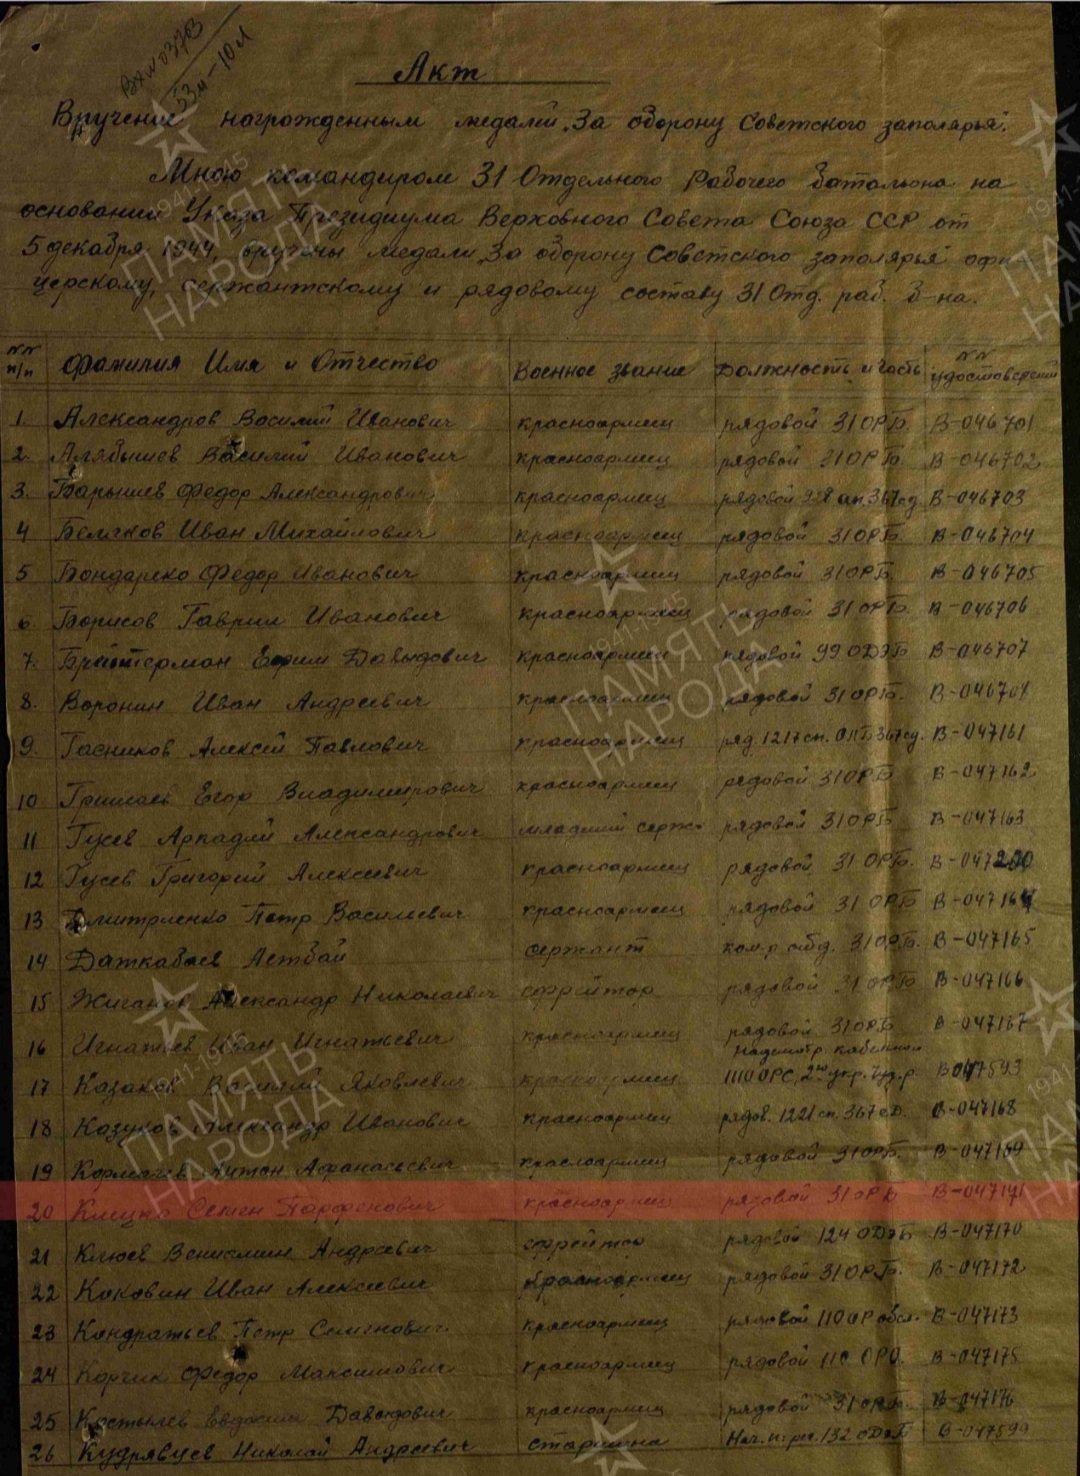 Вх № 03703
53м-10л
Акт
Вручения награжденным медали „За оборону Советского заполярья".
Мною командиром 31 Отдельного Рабочего батальона на
основании Указа Президиума Верховного Совета Союза ССР от
5 декабря 1944, вручены медали „За оборону Советского заполярья" офи-
церскому, сержантскому и рядовому составу 31 Отд. раб. б-на.
№№ п/п Фамилия Имя и Отчество Военное звание Должность и часть №№ удостоверений
1. Александров Василий Иванович красноармеец рядовой 31 ОРБ. В-046701
2. Алябышев Василий Иванович красноармеец рядовой 31 ОРБ. В-046702
3. Барышев Федор Александрович красноармеец рядовой 928 ап 367 сд. В-046703
4 Беляков Иван Михайлович красноармеец рядовой 31 ОРБ. В-046704
5 Бондаренко Федор Иванович красноармеец рядовой 31 ОРБ. В-046705
6. Борисов Гаврил Иванович красноармеец рядовой 31 ОРБ. В-046706
7. Бройтерман Ефим Давыдович красноармеец рядовой 99 ОДЭБ В-046707
8. Воронин Иван Андреевич красноармеец рядовой 31 ОРБ. В-046708
9. Гасников Алексей Павлович красноармеец ряд. 1217 сп. 367 сд. В-047161
10 Гришаев Егор Владимирович красноармеец рядовой 31 ОРБ В-047162
11 Гусев Аркадий Александрович младший серж. рядовой 31 ОРБ В-047163
12 Гусев Григорий Алексеевич красноармеец рядовой 31 ОРБ. В-047200
13 Дмитриенко Петр Васильевич красноармеец рядовой 31 ОРБ В-047164
14 Даткабаев Астбай сержант ком-р отд. 31 ОРБ. В-047165
15 Жиганов Александр Николаевич ефрейтор рядовой 31 ОРБ В-047166
16 Игнатьев Иван Игнатьевич красноармеец рядовой 31 ОРБ В-047167
17 Казаков Василий Яковлевич красноармеец надсмотр. кабельн. 1110 ОРС, В-047593
18 Козуков Александр Иванович красноармеец рядов. 1221 сп. 367 сд. В-047168
19 Кормачев Антон Афанасьевич красноармеец рядовой 31 ОРБ. В-047169
20 Клецко Семен Парфенович красноармеец рядовой 31 ОРБ В-047171
21 Клюев Вениамин Андреевич ефрейтор рядовой 124 ОДЭБ В-047170
22 Коковин Иван Алексеевич красноармеец рядовой 31 ОРБ. В-047172
23 Кондратьев Петр Семенович. красноармеец рядовой 110 ОР обсл. В-047173
24 Корчик Федор Максимович красноармеец рядовой 110 ОРО. В-047175
25 Костылев Евдоким Давыдович красноармеец рядовой 31 ОРБ. В-047176
26 Кудрявцев Николай Андреевич старшина 132 ОДЭБ В-047599
ПАМЯТЬ НАРОДА
1941-1945